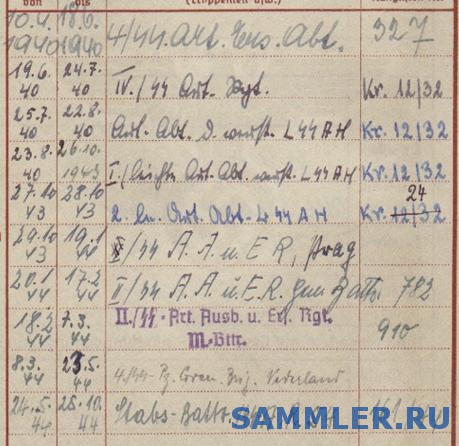 von bis
10.4. 1940 18.6. 1940 4/44. Art. Ers. Abt. 327
19.6. 40 24.7. 40 IV./44 Art. Rgt. Kr. 12/32
25.7. 40 22.8. 40 Art.- Abt. d. verst. L44AH Kr. 12/32
23.8. 40 26.10. 1943 I./leichte Art. Abt. verst. L44AH Kr. 12/32
27.10 43 28.10 43 2. Art. Abt. L44AH Kr. 12/32 24
29.10 43 19.1 44 /44 A. A. u. E R, Prag
20.1 44 17.2 44 II/44 A. A. u. E. R. Battr. 782
18.2 44 7.3. 44 II./44-Art. Ausb. u. Ers. Rgt. 910
M.-Bttr.
8.3. 44 23.5. 44 4./44- Pz. Gren. Brig. Nederland
24.5. 44 25.10. 44 Stabs-Battr.
SAMMLER.RU